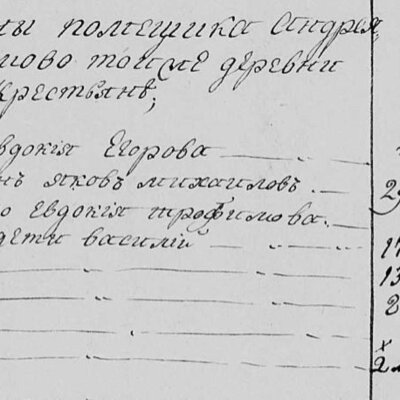 ты помещика Андрея
ново тоисме деревни
крестьянѣ;
вдокія Егорова
нъ яковъ михаиловъ. 29
о Евдокія трофимова.
дети василій 17
" " 13
" " 2
" "
" " 2